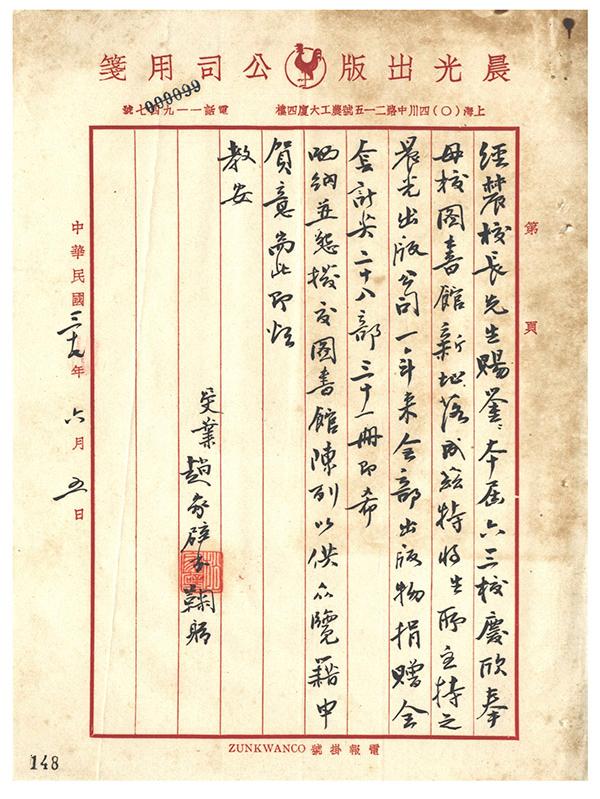 晨光出版公司用箋
上海(〇)四川中路二一五號農工大廈四樓
電話一一九四七號
000099
第 頁
經農校長先生賜鑒、本屆六三校慶欣奉
母校圖書館新址落成茲特將生所主持之
晨光出版公司一年來全部出版物捐贈全
套計共二十八部三十一冊即希
哂納並懇撥交圖書館陳列以供眾覽藉申
賀意耑此即頌
教安
受業趙家璧 鞠躬
中華民國 年六月五日
電報掛號 ZUNKWANCO
148